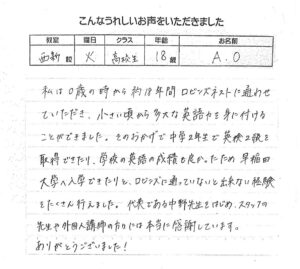 こんなうれしいお声をいただきました
教室 曜日 クラス 年齢 お名前
西新 校 火 高校生 18歳 A.O
私は0歳の時から約18年間ロビンズネストに通わせ
ていただき、小さい頃から多大な英語力を身に付ける
ことができました。そのおかげで中学2年生で英検2級を
取得できたり、学校の英語の成績も良かったため早稲田
大学へ入学できたりと、ロビンズに通っていないと出来ない経験
をたくさん行えました。代表である中野先生をはじめ、スタッフの
先生や外国人講師の方々には本当に感謝しています。
ありがとうございました!